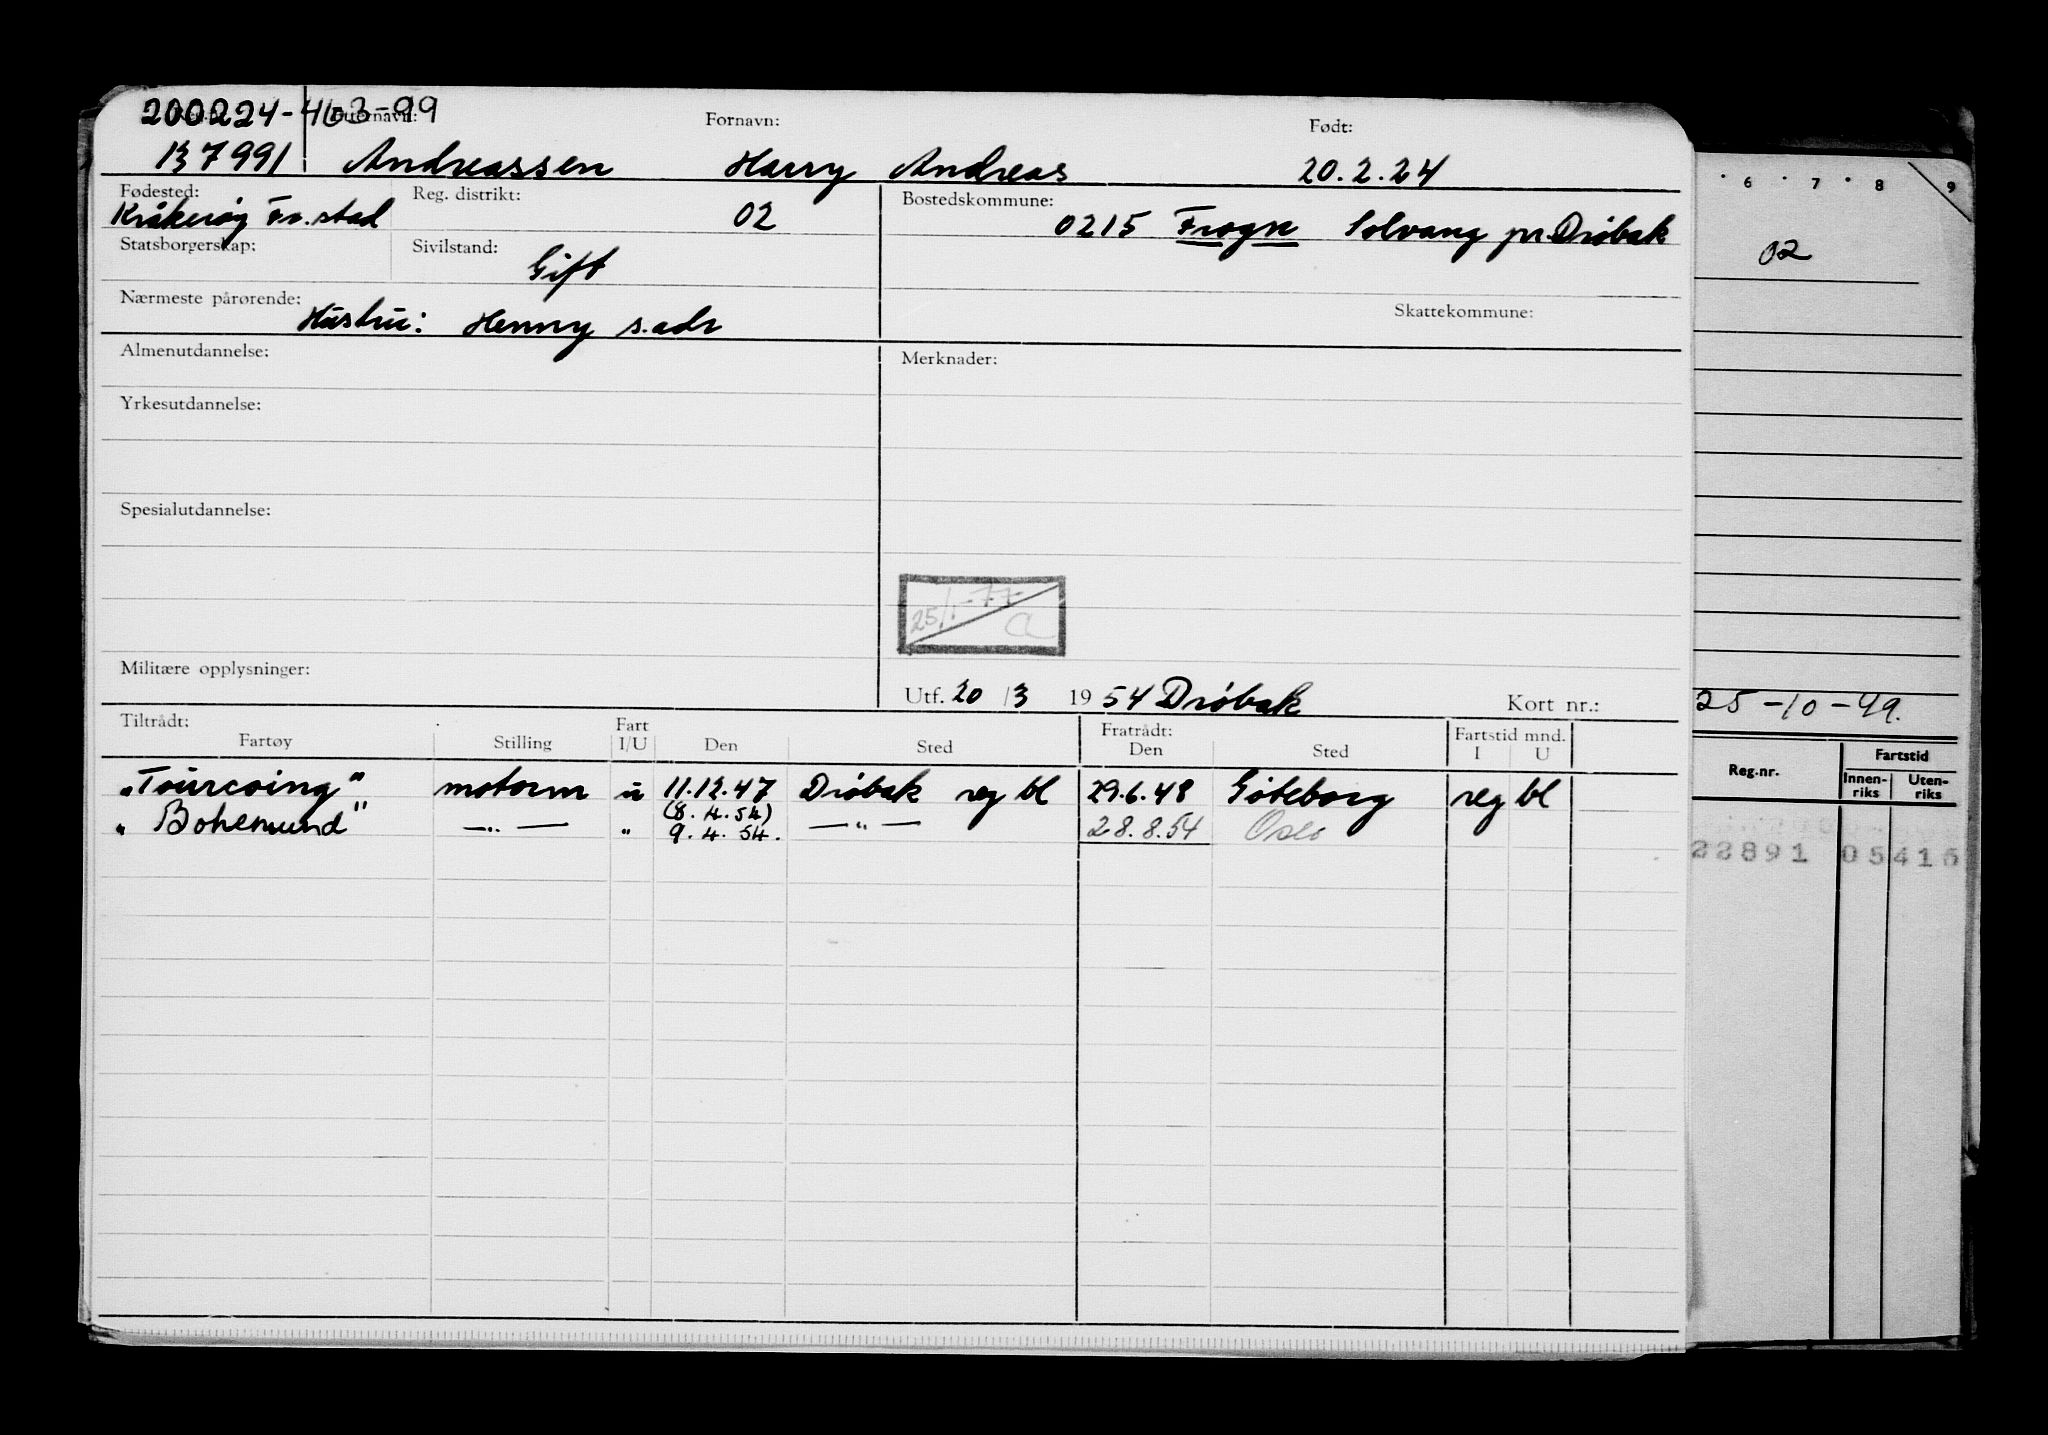 200224-463-99 Etternavn: Fornavn: Født:
137991 Andreassen Harry Andreas 20.2.24
Fødested: Reg. distrikt: Bostedskommune:
Kråkerøy Fr.stad 02 0215 Frogn Solvang pr. Drøbak
Statsborgerskap: Sivilstand: Gift
Nærmeste pårørende: Skattekommune:
Hustru: Henny s.adr
Almenutdannelse: Merknader:
Yrkesutdannelse:
Spesialutdannelse:
25/1-77
Militære opplysninger:
Utf. 20/3 1954 Drøbak Kort nr.:
Tiltrådt: Fart Fratrådt: Fartstid mnd.
Fartøy Stilling I/U Den Sted Den Sted I U
"Tourcoing" motorm u 11.12.47 Drøbak reg bl 29.6.48 Göteborg reg bl
(8.4.54)
"Bohemund" —"— " 9.4.54. —"— 28.8.54 Oslo
6 7 8 9
02
25-10-99.
Reg.nr. Fartstid
Innen-riks Uten-riks
22891 05416